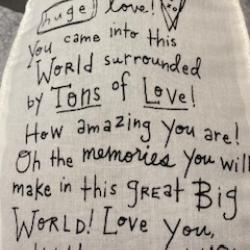 huge love!
You came into this
World surrounded
by Tons of Love!
How amazing you are!
Oh the memories you will
make in this great Big
World! Love you,